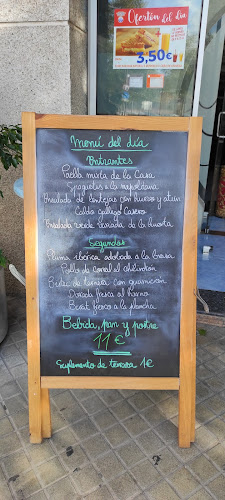 Ofertón del Día
3,50€
Menú del día
Entrantes
Paella mixta de la Casa
Spaguetis a la napolitana
Ensalada de lentejas con huevo y atún
Caldo gallego Casero
Ensalada verde variada de la huerta
Segundos
Pluma ibérica adobada a la brasa
Pollo de corral al chilindrón
Bistec de ternera con guarnición
Dorada fresca al horno
fresco a la plancha
Bebida, pan y postre
11€
Suplemento de terraza 1€